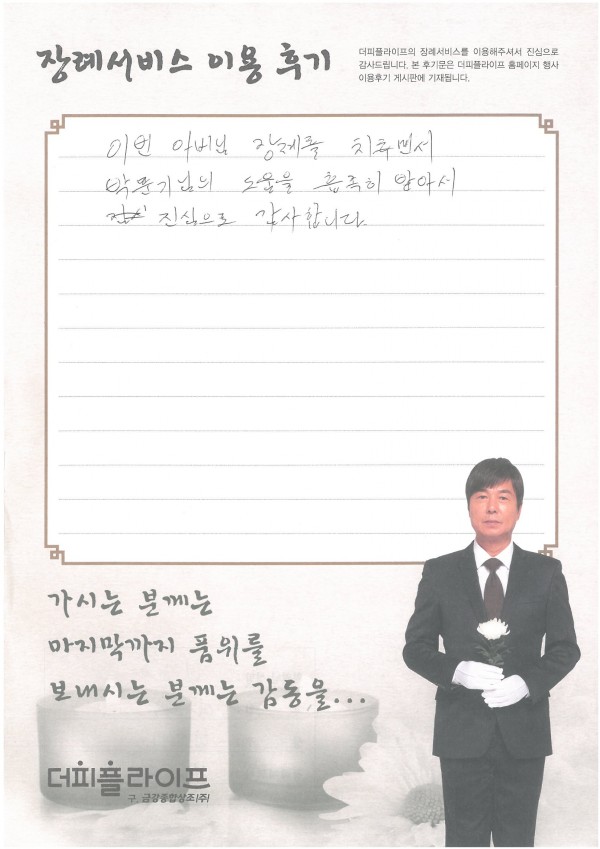 장례서비스 이용 후기
더피플라이프의 장례서비스를 이용해주셔서 진심으로
감사드립니다. 본 후기문은 더피플라이프 홈페이지 행사
이용후기 게시판에 기재됩니다.
이번 아버님 장례를 치루면서
박문기님의 도움을 흡족히 받아서
진심으로 감사합니다.
가시는 분께는
마지막까지 품위를
보내시는 분께는 감동을...
더피플라이프
구. 금강종합상조(주)